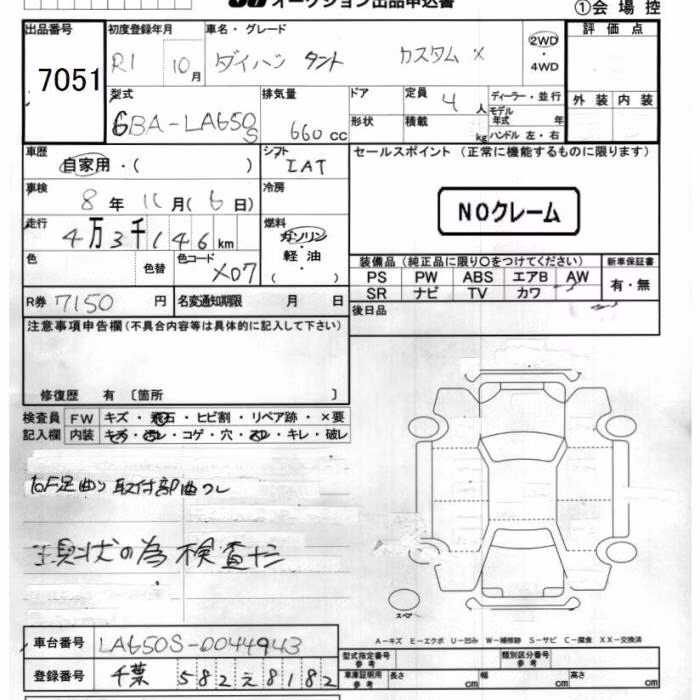 オークション出品申込書
①会場控
出品番号 初度登録年月 車名・グレード 評価点
7051 R1 10月 ダイハツ タント カスタム X 2WD・4WD
型式 排気量 ドア 定員 4人 ディーラー・並行 外装 内装
6BA-LA650S 660cc 形状 積載 kg モデル年式 年 ハンドル 左・右
車歴 シフト セールスポイント (正常に機能するものに限ります)
自家用・( ) IAT
車検 8年11月(6日) 冷房
NOクレーム
走行 4万3千146km 燃料 ガソリン・軽油・( )
色 色替 色コード X07
装備品 (純正品に限り○をつけてください) 新車保証書
PS PW ABS エアB AW 有・無
SR ナビ TV カワ
R券 7150円 名変通知期限 月 日 後日品
注意事項申告欄(不具合内容等は具体的に記入して下さい)
修復歴 有 〔箇所 〕
検査員記入欄 FW キズ・飛石・ヒビ割・リペア跡・×要
内装 キズ・コゲ・穴・キレ・破レ
右F足曲り 取付部曲クレ
現状の為 検査ナシ
スペア
車台番号 LA650S-0044943
A-キズ E-エクボ U-凹み W-補修跡 S-サビ C-腐食 XX-交換済
登録番号 千葉 582 え 8182
型式指定番号 参考 類別区分番号 参考
車庫証明用 参考 長さ cm 幅 cm 高さ cm